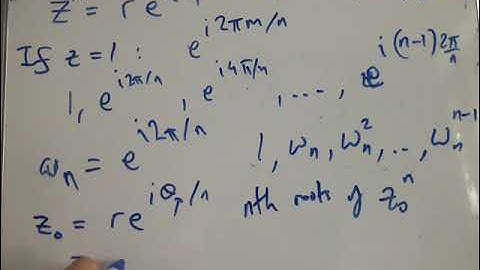 z = re
If z = 1 : e^{i2πm/n}
1, e^{i2π/n}, e^{i4π/n}, ..., e^{i(n-1)2π/n}
ω_n = e^{i2π/n} 1, ω_n, ω_n^2, .., ω_n^{n-1}
z_0 = re^{iθ_p/n} nth roots of z_0^n